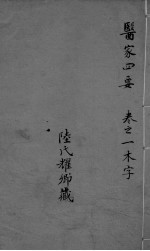 醫家四要 卷之一 木字
陸氏耀卿藏